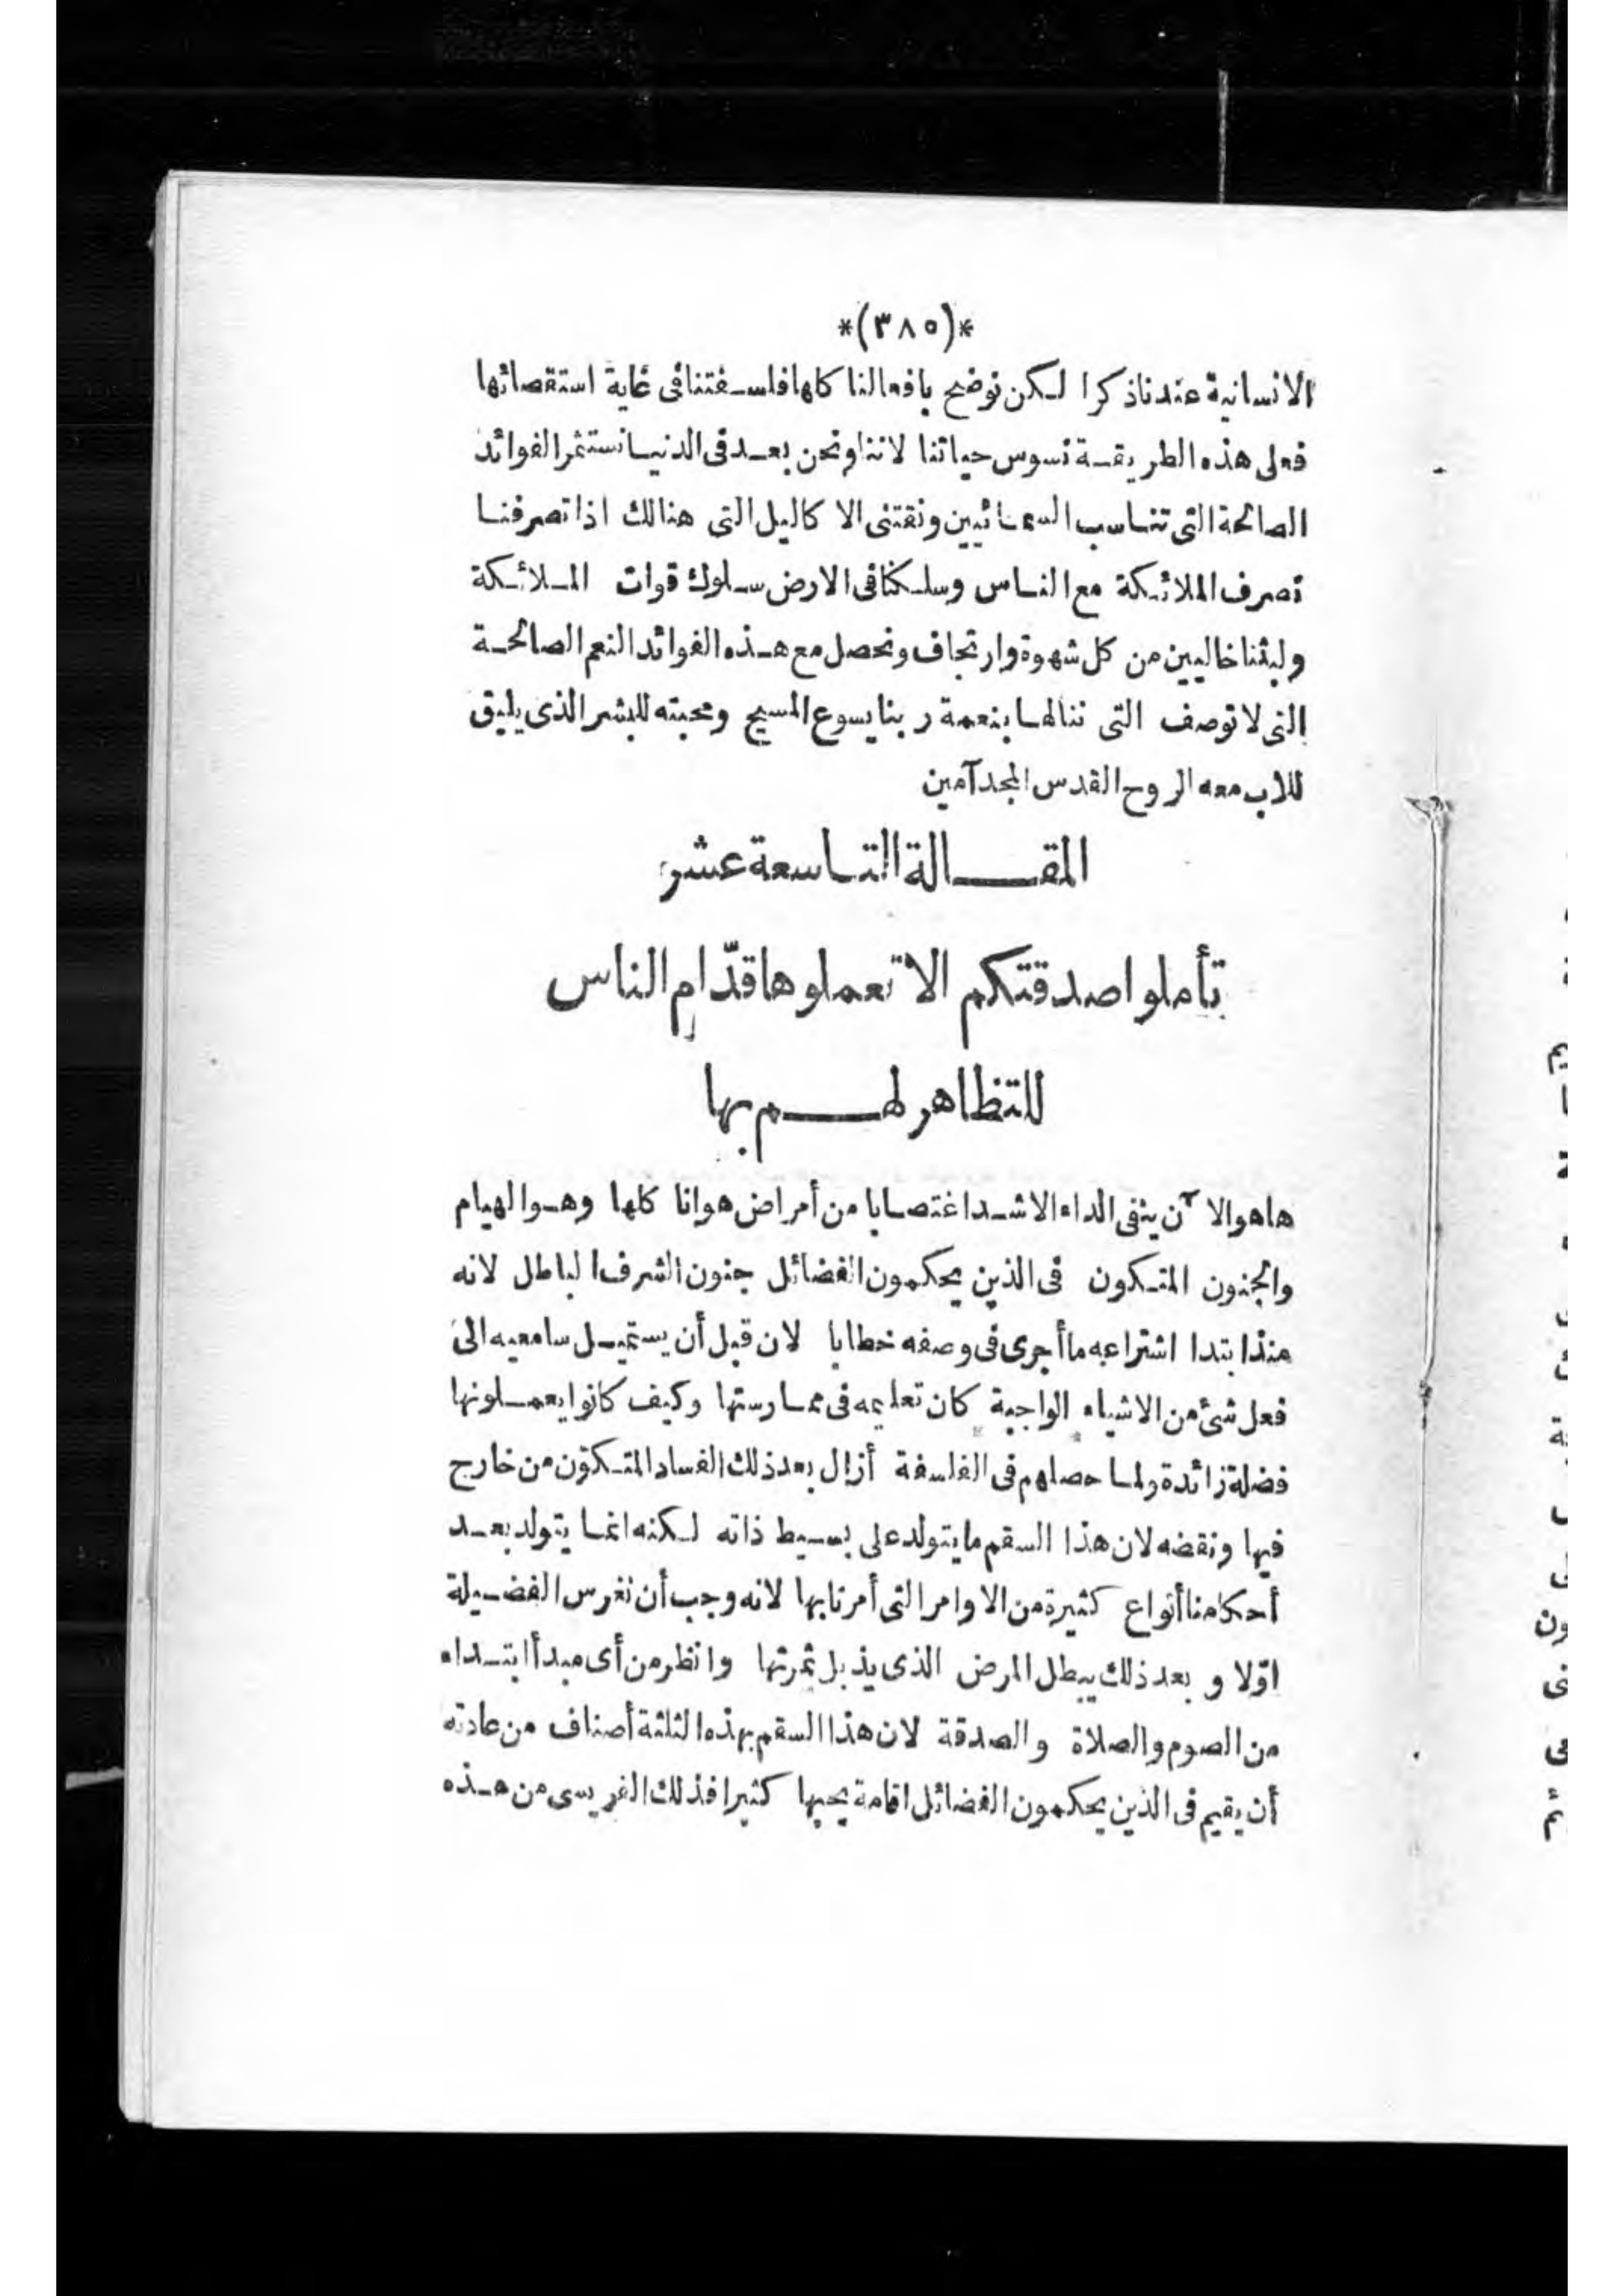 *(٣٨٥)*
الانسانية عندناذكرا لكن نوضح بافعالنا كلهافلسفتنافى غاية استقصائها
فعلى هذه الطريقة نسوس حياتنا لانناونحن بعد فى الدنيا نستثمر الفوائد
الصالحة التى تناسب السمائيين ونقتنى الاكاليل التى هنالك اذاتصرفنا
تصرف الملائكة مع الناس وسلكنافى الارض سلوك قوات الملائكة
ولبثناخاليين من كل شهوة وارتجاف ونحصل مع هذه الفوائد النعم الصالحة
التى لا توصف التى ننالها بنعمة ربنا يسوع المسيح ومحبته للبشر الذى يليق
للاب معه الروح القدس المجد آمين
المقالة التاسعة عشر
تأملوا صدقتكم الا تعملوها قدّام الناس
للتظاهر لهم بها
هاهوالآن ينفى الداء الاشد اغتصابا من أمراض هوانا كلها وهو الهيام
والجنون المتكون فى الذين يحكمون الفضائل جنون الشرف الباطل لانه
منذا بتدا اشتراعه ماأجرى فى وصفه خطابا لان قبل أن يستميل سامعيه الى
فعل شئ من الاشياء الواجبة كان تعليمه فى ممارستها وكيف كانوا يعملونها
فضلة زائدة ولما حصلهم فى الفلسفة أزال بعد ذلك الفساد المتكوّن من خارج
فيها ونقضه لان هذا السقم ما يتولد على بسيط ذاته لكنه انما يتولد بعد
أحكامنا أنواع كثيرة من الاوامر التى أمرنا بها لانه وجب أن نغرس الفضيلة
اوّلا و بعد ذلك يبطل المرض الذى يذبل ثمرتها وانظر من أى مبدأ ابتداء
من الصوم والصلاة والصدقة لان هذا السقم بهذه الثلثة أصناف من عادته
أن يقيم فى الذين يحكمون الفضائل اقامة يحبها كثيرا فذلك الفريسى من هذه